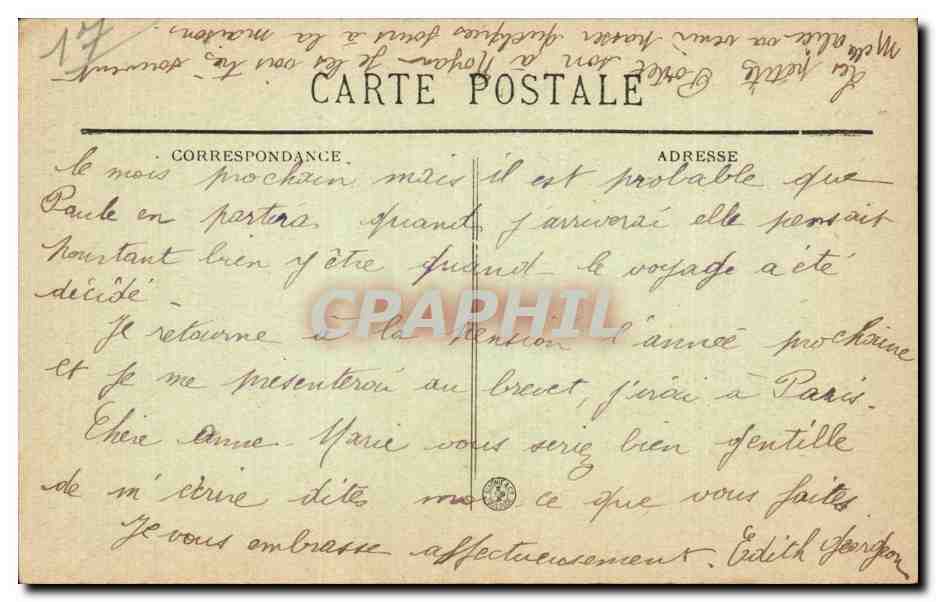 17
CARTE POSTALE
CORRESPONDANCE
ADRESSE
le mois prochain mais il est probable que
Paule en partira quand j'arriverai elle pensait
pourtant bien y être quand le voyage a été
décidé -
Je retourne à la pension l'année prochaine
et je me presenterai au brevet, j'irai à Paris.
Chère Anne-Marie vous seriez bien gentille
de m'écrire dites moi ce que vous faites
Je vous embrasse affectueusement. Edith Georgeon
Les petits Portet son a Royan je les vois très souvent
Melle alice va venir passer quelques jours à la maison.
CPAPHIL